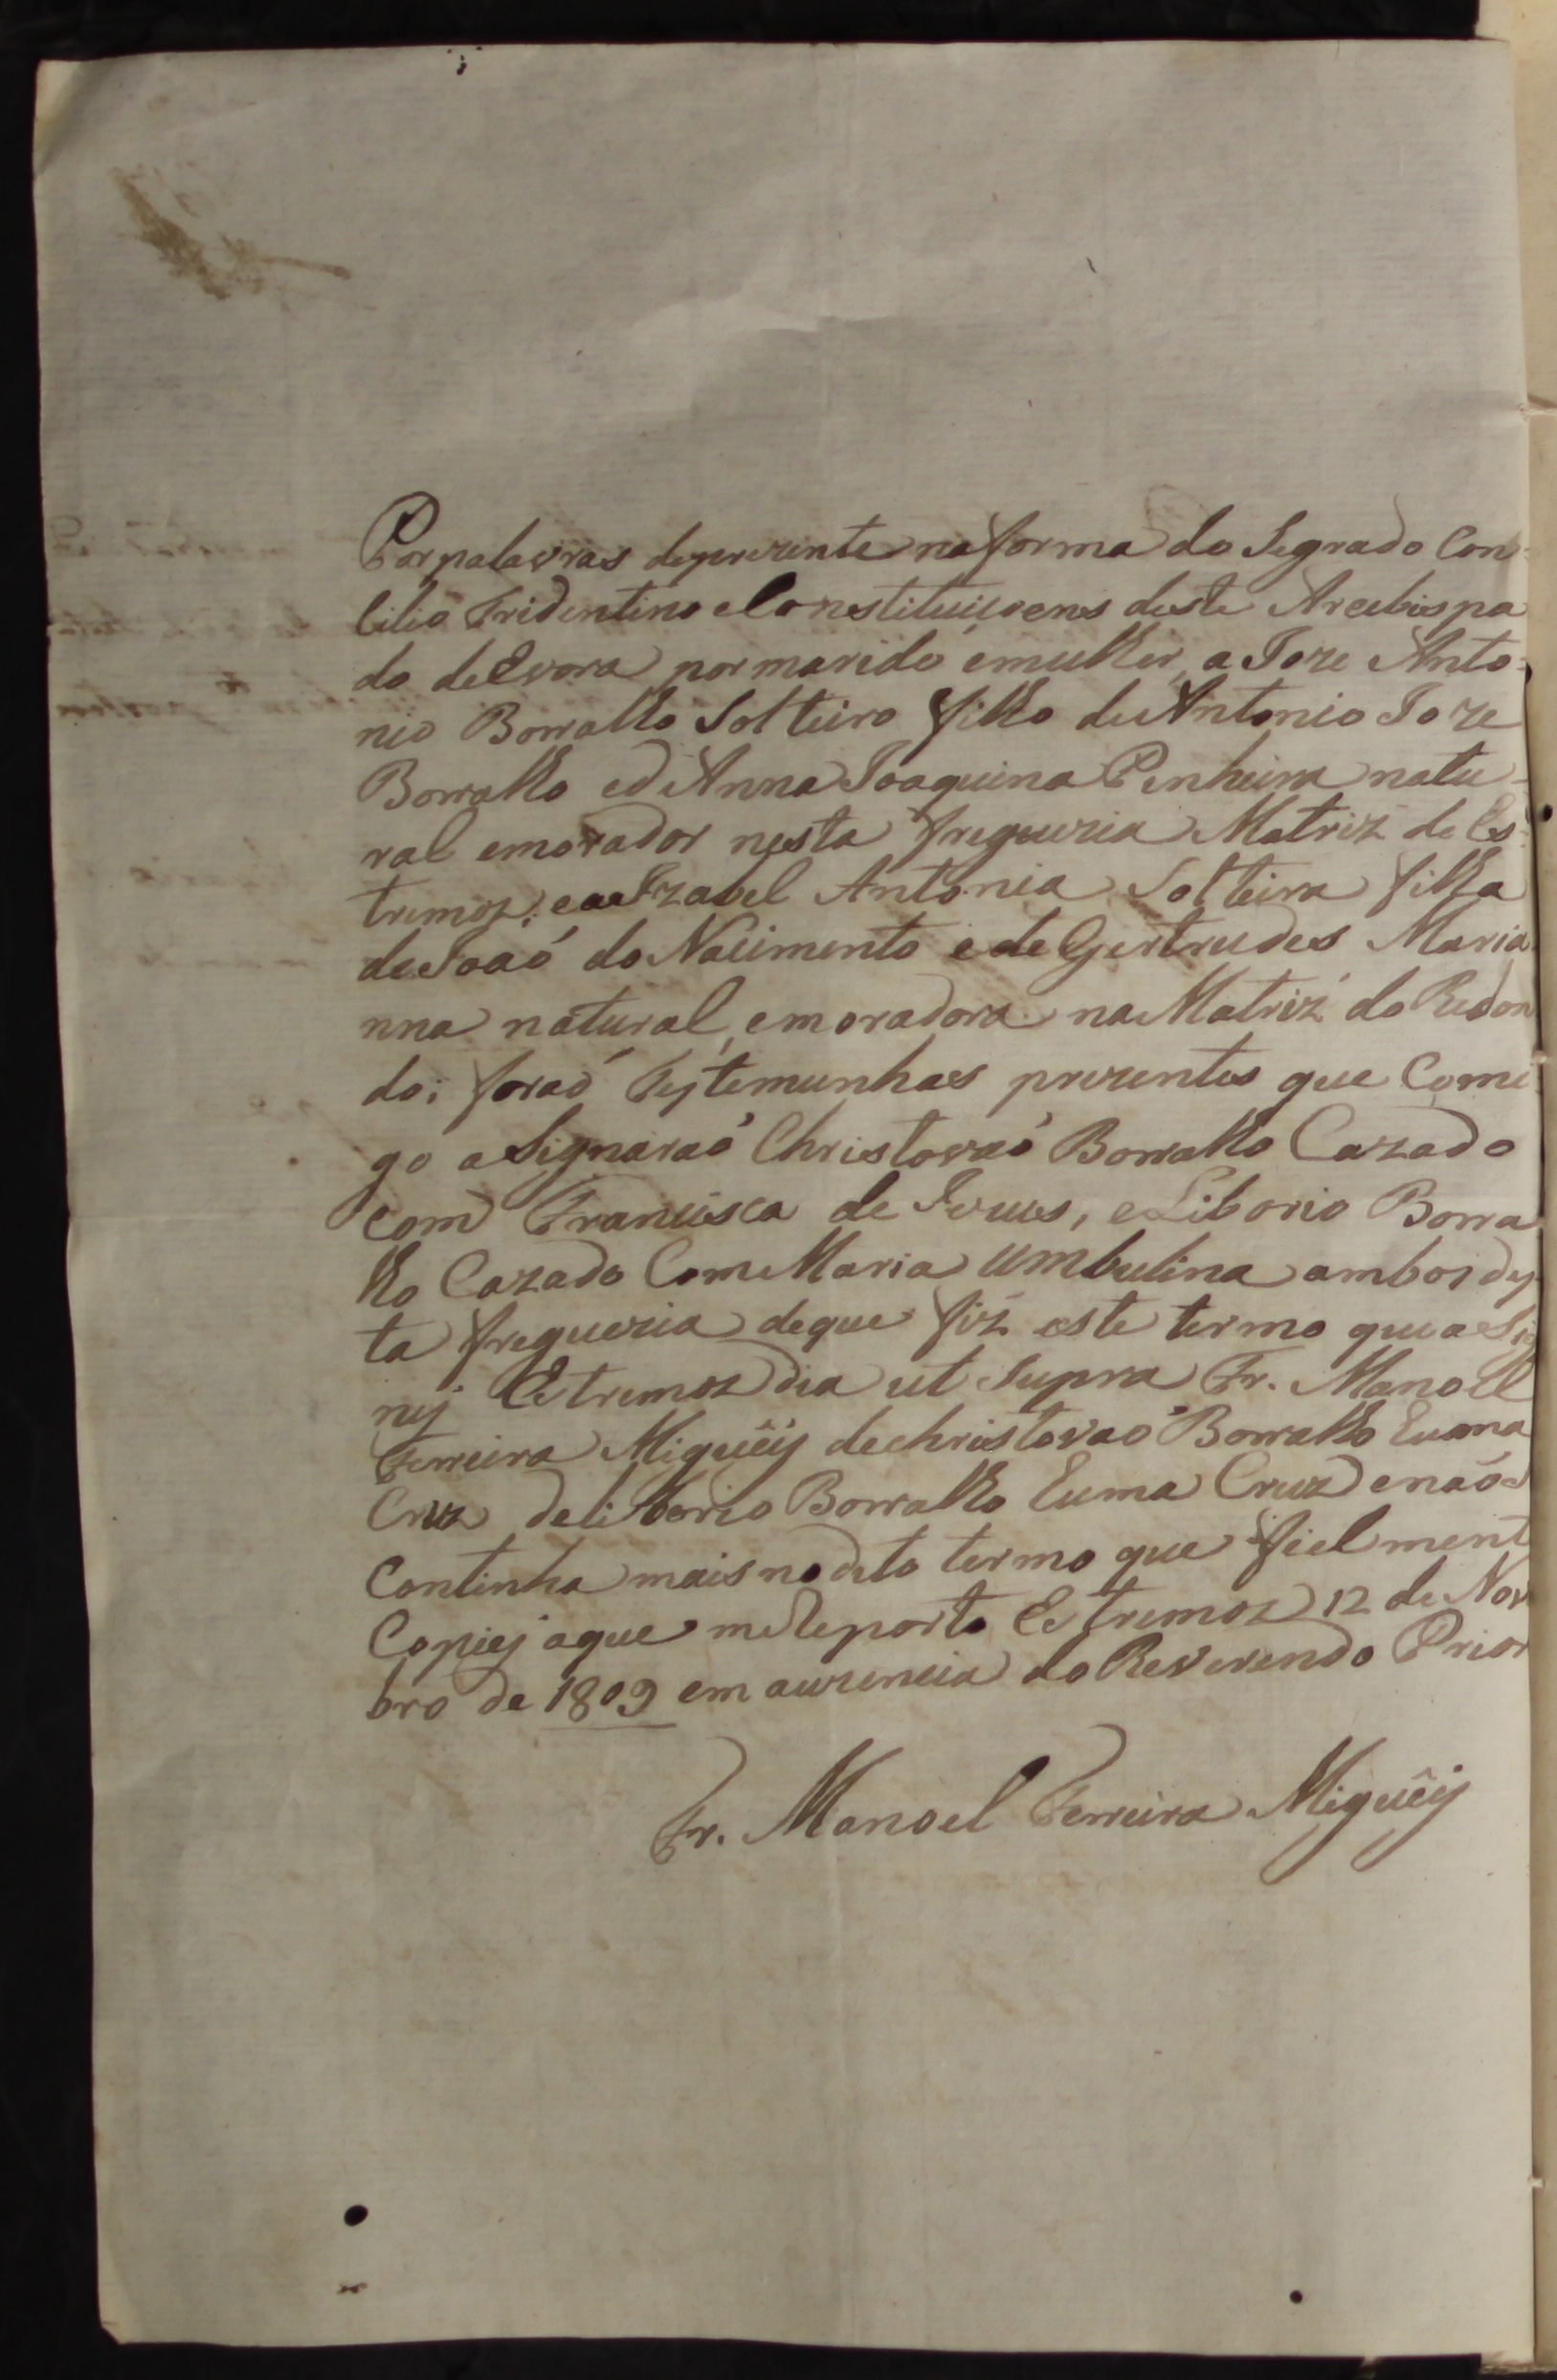 Por palavras deprezente na forma do Segrado Con=
cilio Tridentino e Constituicoens deste Arcebispa
do de Evora por marido emulher, a Joze Anto=
nio Borralho Solteiro filho de Antonio Joze
Borralho ed Anna Joaquina Pinheira natu-
ral emorador nesta freguezia Matriz de Es-
tremoz; e a Izabel Antonia Solteira filha
de Joaó do Nacimento e de Gertrudes Maria
nna natural, emoradora na Matriz do Redon
do; foraó Testemunhas prezentes que Comi
go aSignaraó Christovaó Borralho Cazado
Com Francisca de Jezus, e Liborio Borra
lho Cazado Com Maria Umbulina ambos des
ta freguezia deque fiz este termo que aSig
nej Estremoz dia ut Supra Fr. Manoel
Ferreira Miguêij de Christovaó Borralho huma
Cruz de Liborio Borralho huma Cruz enaó
Continha mais no dito termo que fielment
Copiej aque me Reporto Estremoz 12 de Nov
bro de 1809 em auzencia do Reverendo Prior
Fr. Manoel Ferreira Miguêij